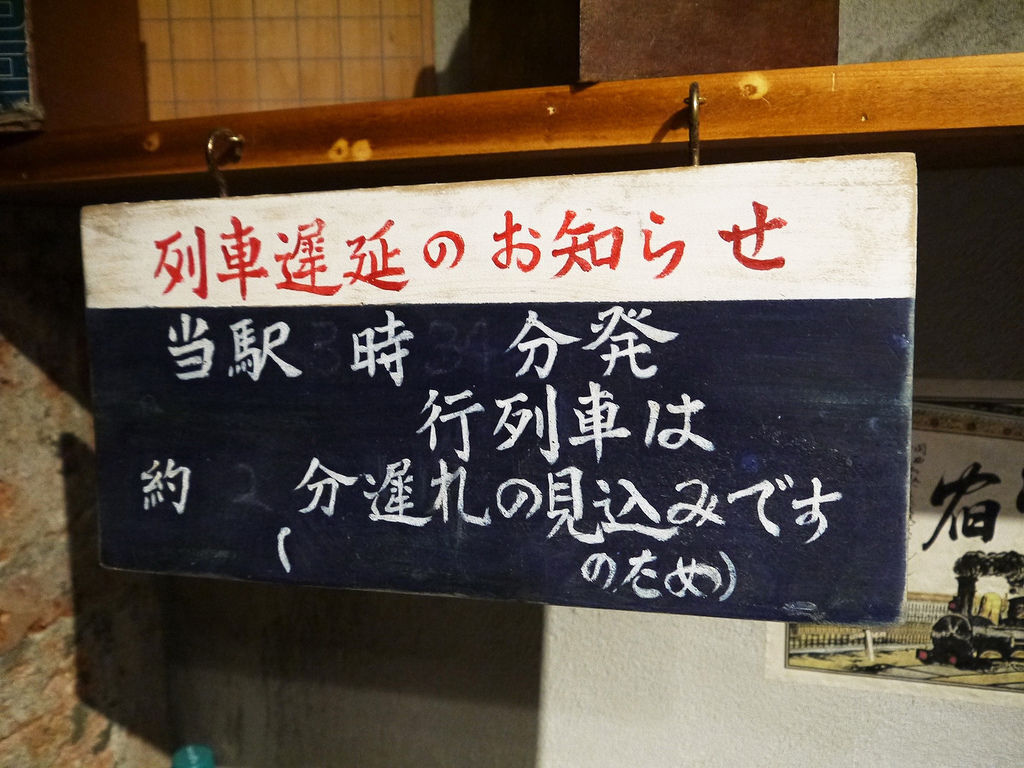 列車遅延のお知らせ
当駅 時 分発
行列車は
約 分遅れの見込みです
( のため)
宿